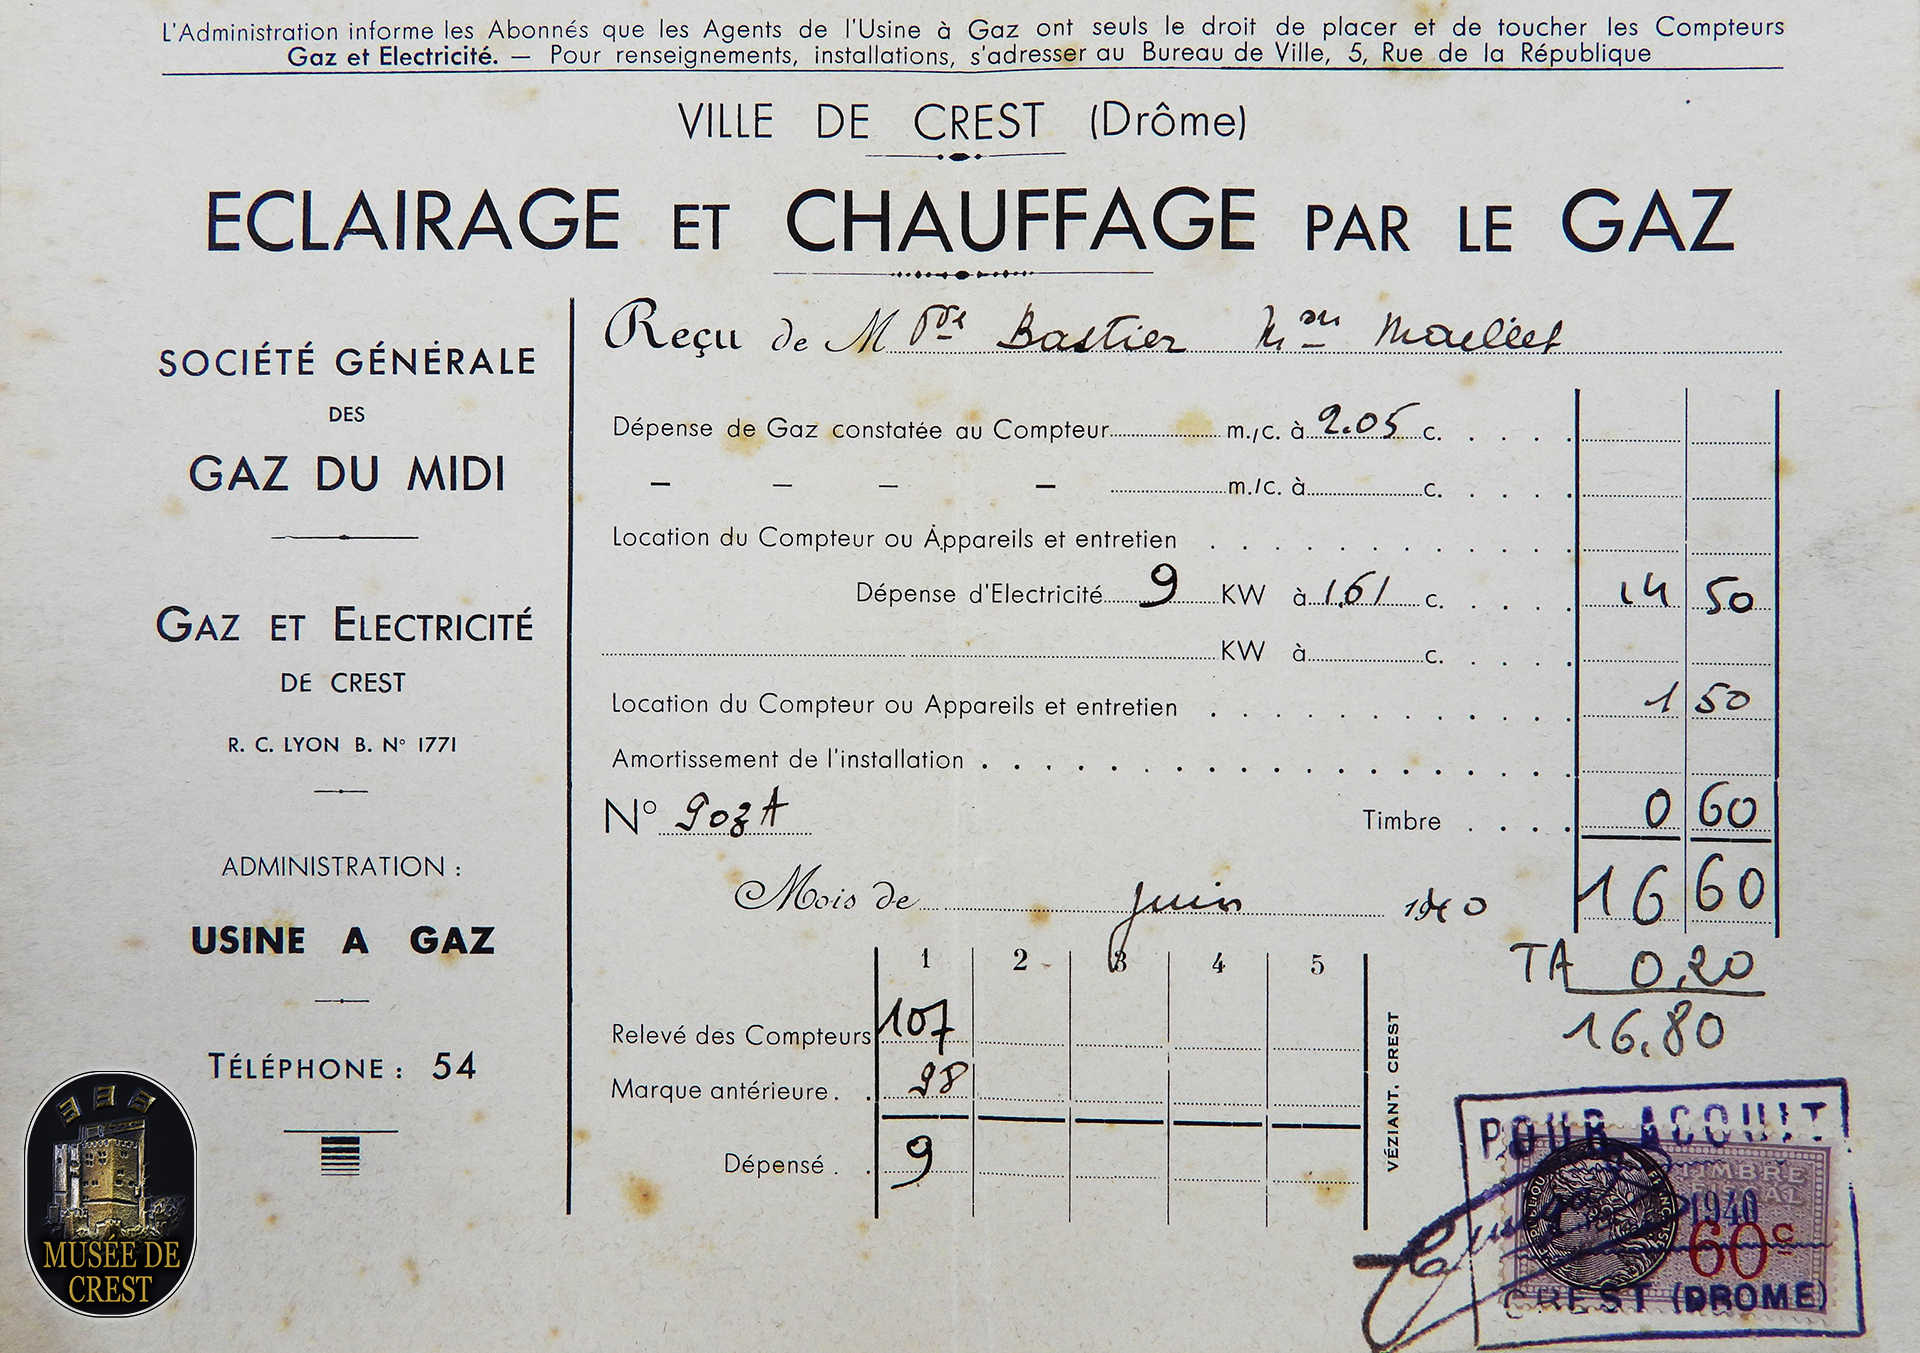 L'Administration informe les Abonnés que les Agents de l'Usine à Gaz ont seuls le droit de placer et de toucher les Compteurs
Gaz et Electricité. — Pour renseignements, installations, s'adresser au Bureau de Ville, 5, Rue de la République
VILLE DE CREST (Drôme)
ECLAIRAGE ET CHAUFFAGE PAR LE GAZ
SOCIÉTÉ GÉNÉRALE
DES
GAZ DU MIDI
GAZ ET ELECTRICITÉ
DE CREST
R. C. LYON B. N° 1771
ADMINISTRATION :
USINE A GAZ
TÉLÉPHONE : 54
Reçu de M Bastier Maillet
Dépense de Gaz constatée au Compteur m./c. à 2.05 c.
— — — — m./c. à c.
Location du Compteur ou Appareils et entretien
Dépense d'Electricité 9 KW à 1,61 c. 14 50
KW à c.
Location du Compteur ou Appareils et entretien 1 50
Amortissement de l'installation
N° Timbre 0 60
Mois de juin 1940 16 60
TA 0,20
16.80
1 2 3 4 5
Relevé des Compteurs 107
Marque antérieure 98
Dépensé 9
VÉZIANT, CREST
POUR ACQUIT
TIMBRE
FISCAL
1940
60c
CREST (DROME)
MUSÉE DE
CREST